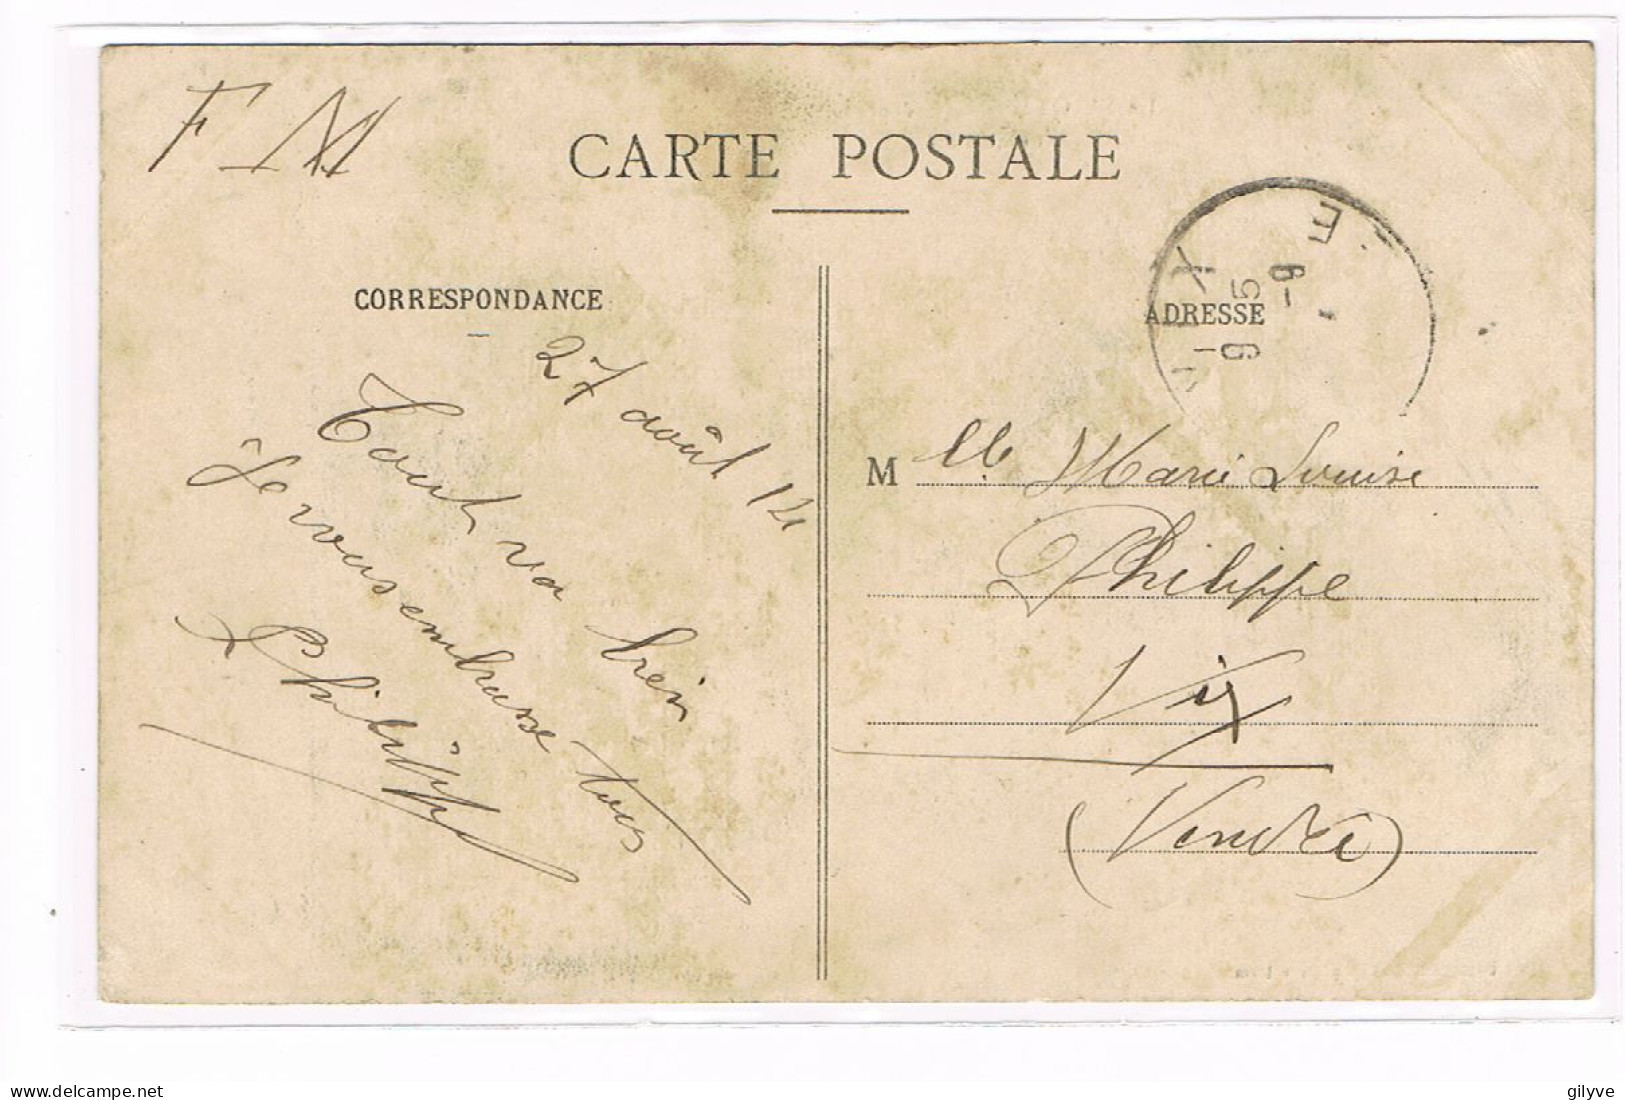 F M
CARTE POSTALE
CORRESPONDANCE
27 août 14
Tout va bien
Je vous embrasse tous
Philippe
ADRESSE
VIX
E
9-
5
9
M lle Marie Louise
Philippe
Vix
(Vendée)
www.delcampe.net
gilyve